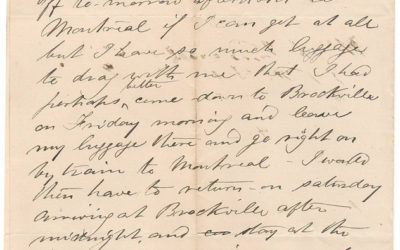 off to-morrow afternoon to
Montreal if I can get at all
but I have so much luggage
to drag with me that I had
perhaps better come down to Brockville
on Friday morning and leave
my luggage there and go right on
by train to Montreal - I would
then have to return on saturday
arriving at Brockville after
midnight, and stay at the